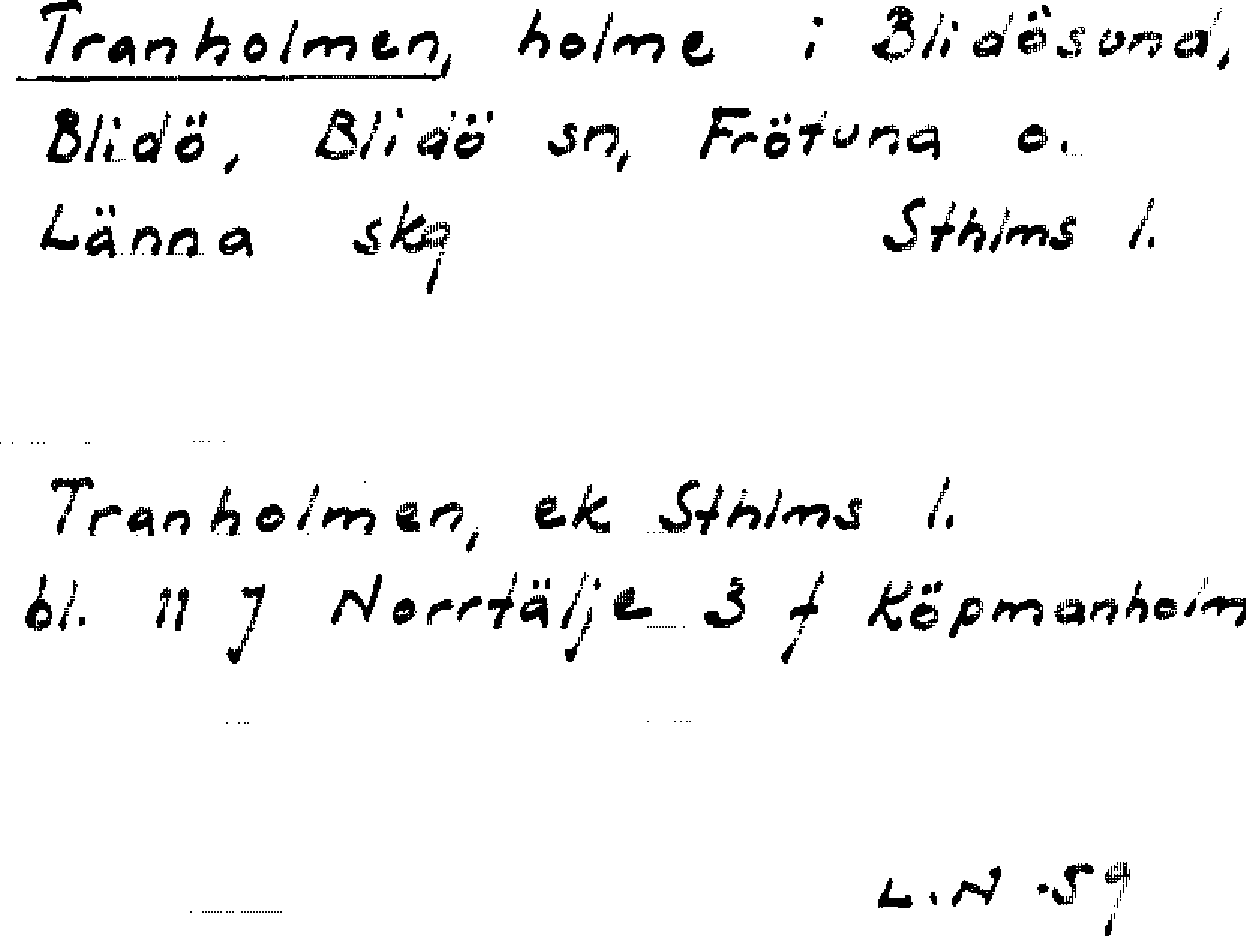 Tranholmen, holme i Blidösund,
Blidö, Blidö sn, Frötuna o.
Länna skg Sthlms l.
Tranholmen, ek Sthlms l.
bl. 11 J Norrtälje 3 f Köpmanholm
L.N -59